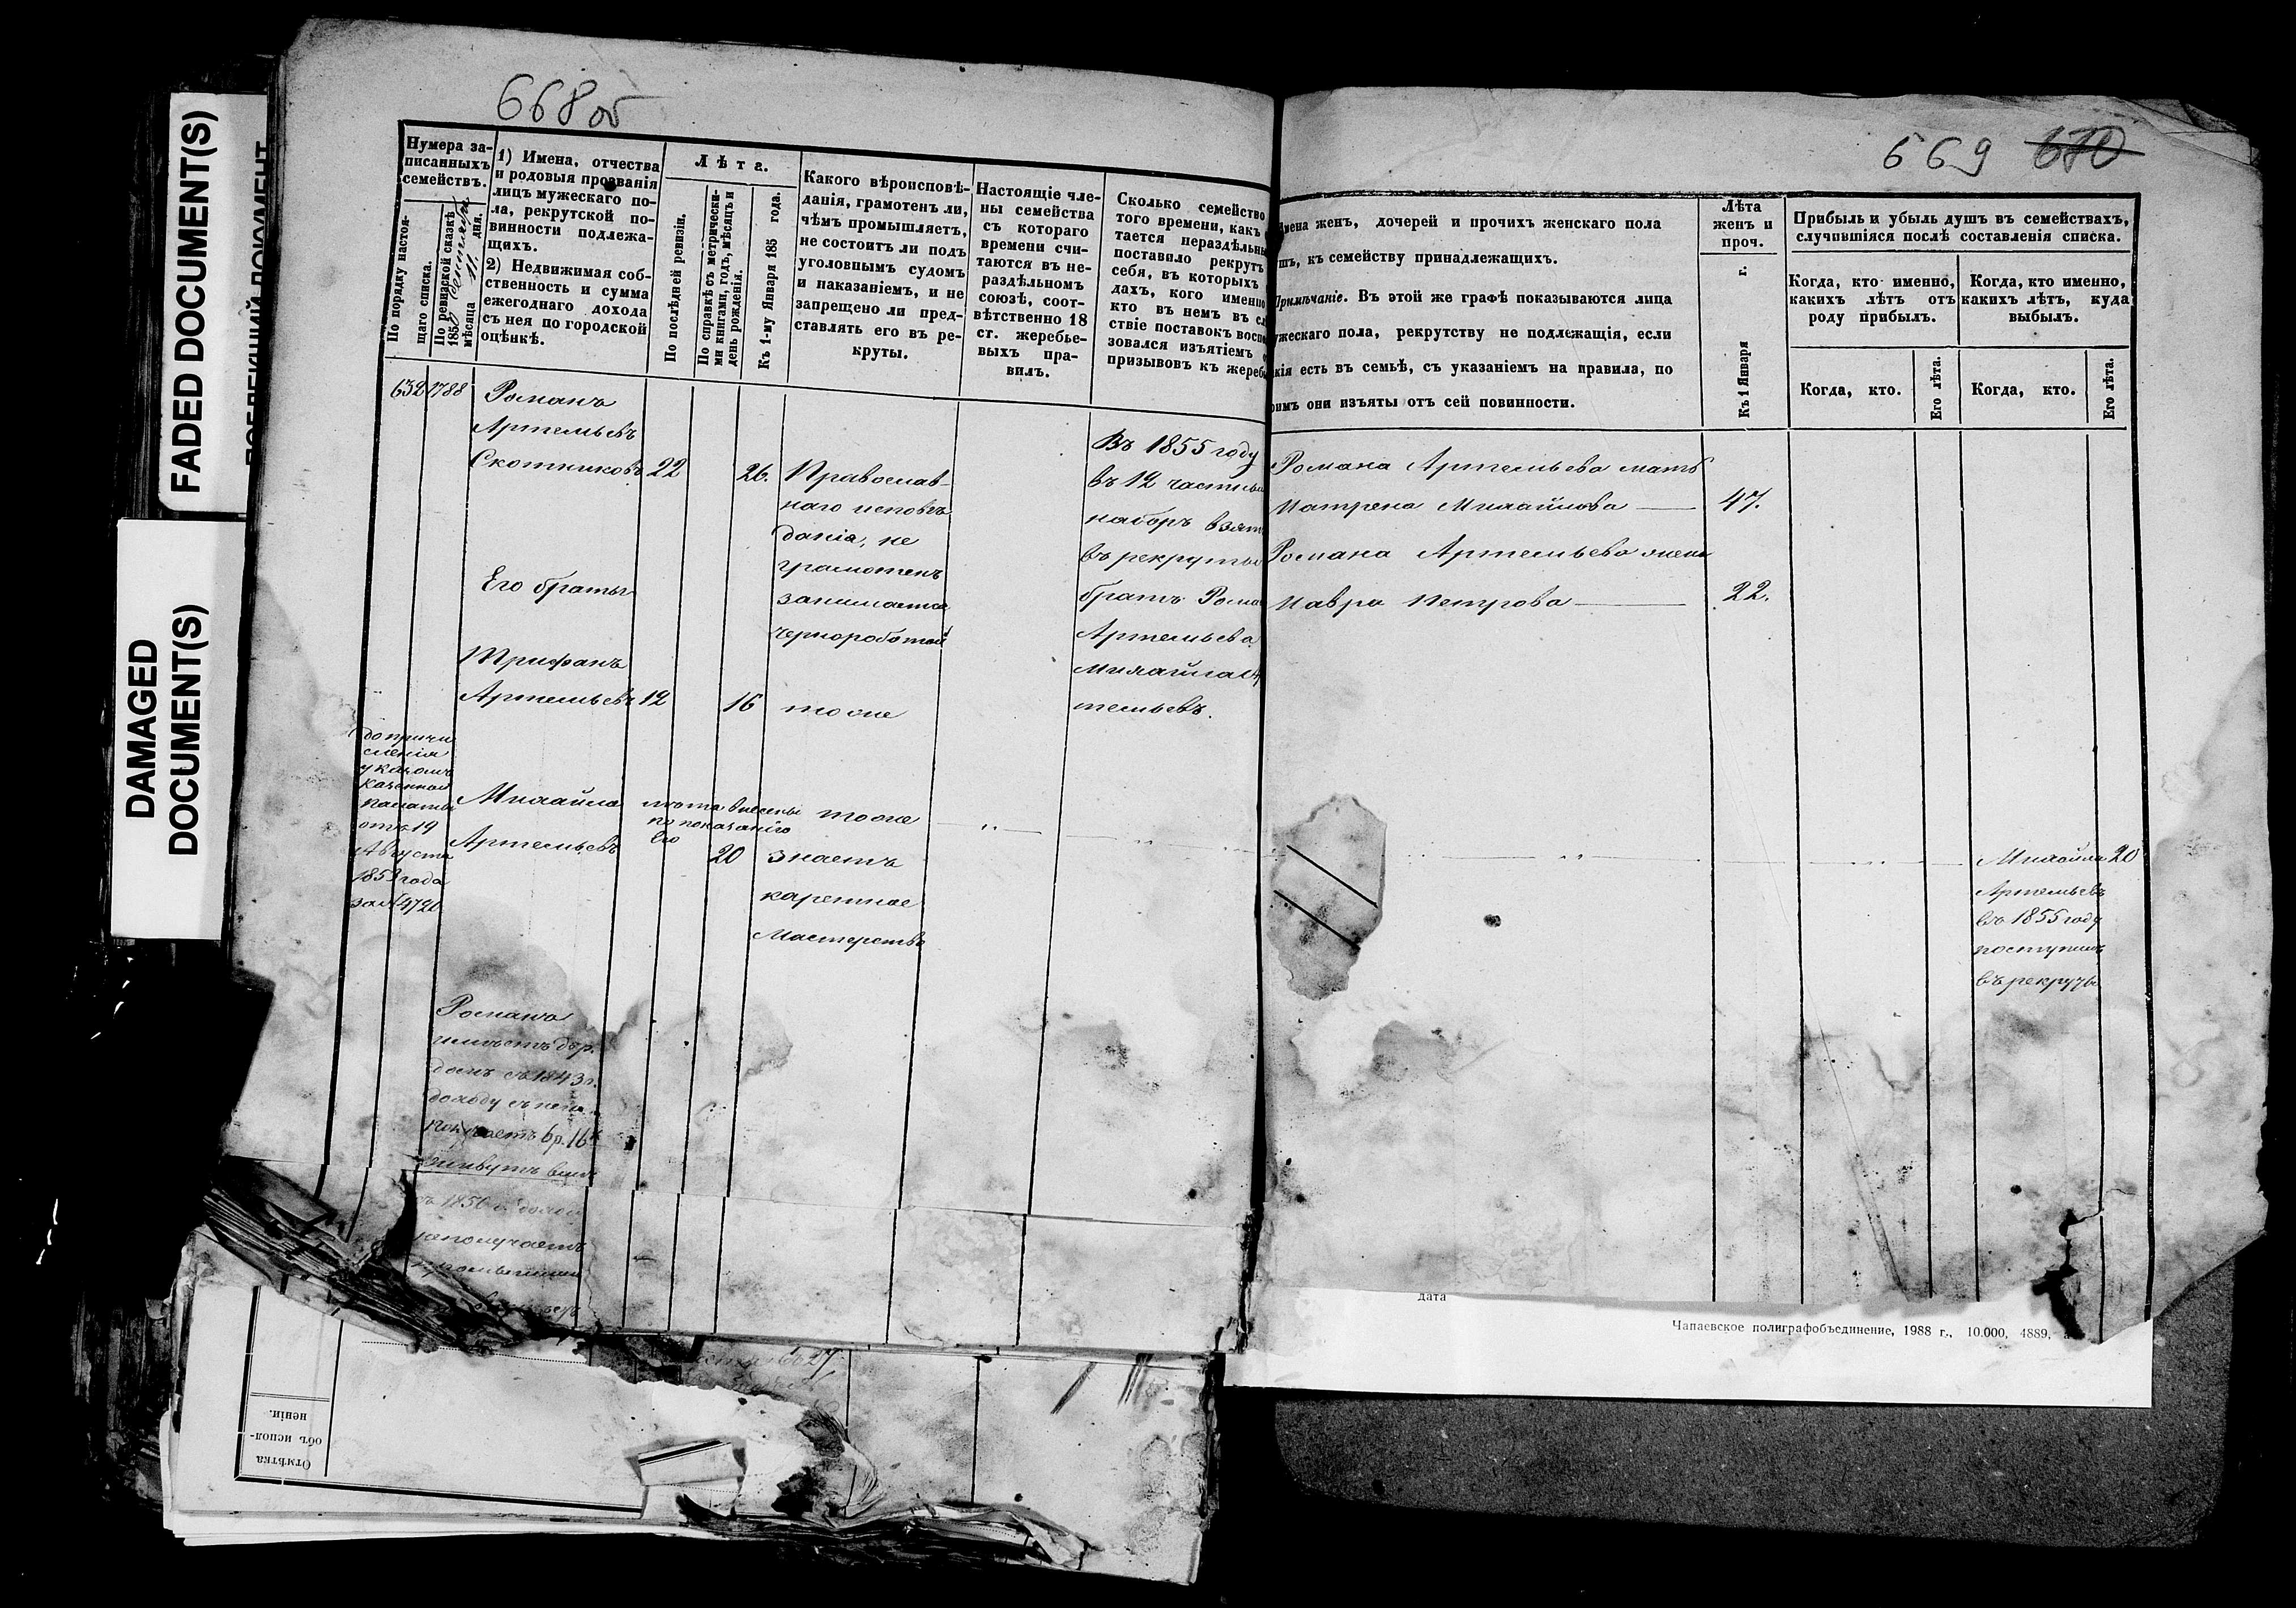 FADED DOCUMENT(S)
DAMAGED
DOCUMENT(S)
668 об
Нумера за-
писанныхъ
семействъ.
По порядку настоя-
щаго списка.
По ревизской сказкѣ
1850
мѣсяца 11. дня.
1) Имена, отчества
и родовыя прозванія
лицъ мужескаго по-
ла, рекрутской по-
винности подлежа-
щихъ.
2) Недвижимая соб-
ственность и сумма
ежегоднаго дохода
съ нея по городской
оцѣнкѣ.
Лѣта.
По послѣдней ревизіи.
По справкѣ съ метрически-
ми книгами, годъ, мѣсяцъ и
день рожденія.
Къ 1-му Января 185 года.
Какого вѣроисповѣ-
данія, грамотенъ ли,
чѣмъ промышляетъ,
не состоитъ ли подъ
уголовнымъ судомъ
и наказаніемъ, и не
запрещено ли пред-
ставлять его въ ре-
круты.
Настоящіе чле-
ны семейства
съ котораго
времени счи-
таются въ не-
раздѣльномъ
союзѣ, соот-
вѣтственно 18
ст. жеребье-
выхъ пра-
вилъ.
Сколько семейство
того времени, какъ
тается нераздѣльн
поставило рекрутъ
себя, въ которыхъ
дахъ, кого именно
кто въ немъ въ сл
ствіе поставокъ воспо
зовался изъятіемъ
призывовъ къ жереб
632 1788
Романъ
Артемьевъ
Скотниковъ 22 26.
Православ-
наго исповѣ
данія, не
грамотенъ
занимается
чернороботой
Въ 1855 году
въ 12 частны
наборъ взят
въ рекруты
братъ Рома
Артемьева
Михайла А
темьевъ.
Его братья
Трифанъ
Артемьевъ 12 16 тоже
до причи
сленія
указомъ
казенной
палаты
отъ 19
Августа
1853 года
за № 4720
Михайла
Артемьевъ
лѣта внесены
по показанію
его
20
тоже
знаетъ
каретное
мастерство
Романъ
имѣетъ дер.
домъ съ 1843 г.
доходу съ него
получаетъ 6 р. 16 к
живутъ вмѣ
получаетъ
669 670
Имена женъ, дочерей и прочихъ женскаго пола
шъ, къ семейству принадлежащихъ.
Примѣчаніе. Въ этой же графѣ показываются лица
ужескаго пола, рекрутству не подлежащія, если
кія есть въ семьѣ, съ указаніемъ на правила, по
оимъ они изъяты отъ сей повинности.
Лѣта
женъ и
проч.
Къ 1 Января г.
Прибыль и убыль душъ въ семействахъ,
случившіяся послѣ составленія списка.
Когда, кто именно,
какихъ лѣтъ отъ
роду прибылъ.
Когда, кто именно,
какихъ лѣтъ, куда
выбылъ.
Когда, кто.
Его лѣта.
Когда, кто.
Его лѣта.
Романа Артемьева мать
Матрена Михайлова 47.
Романа Артемьева жена
Мавра Петрова 22.
Михайла 20
Артемьевъ
въ 1855 году
поступилъ
въ рекруты
дата
Чапаевское полиграфобъединение, 1988 г., 10.000, 4889.
Отмѣтка
объ испол-
неніи.